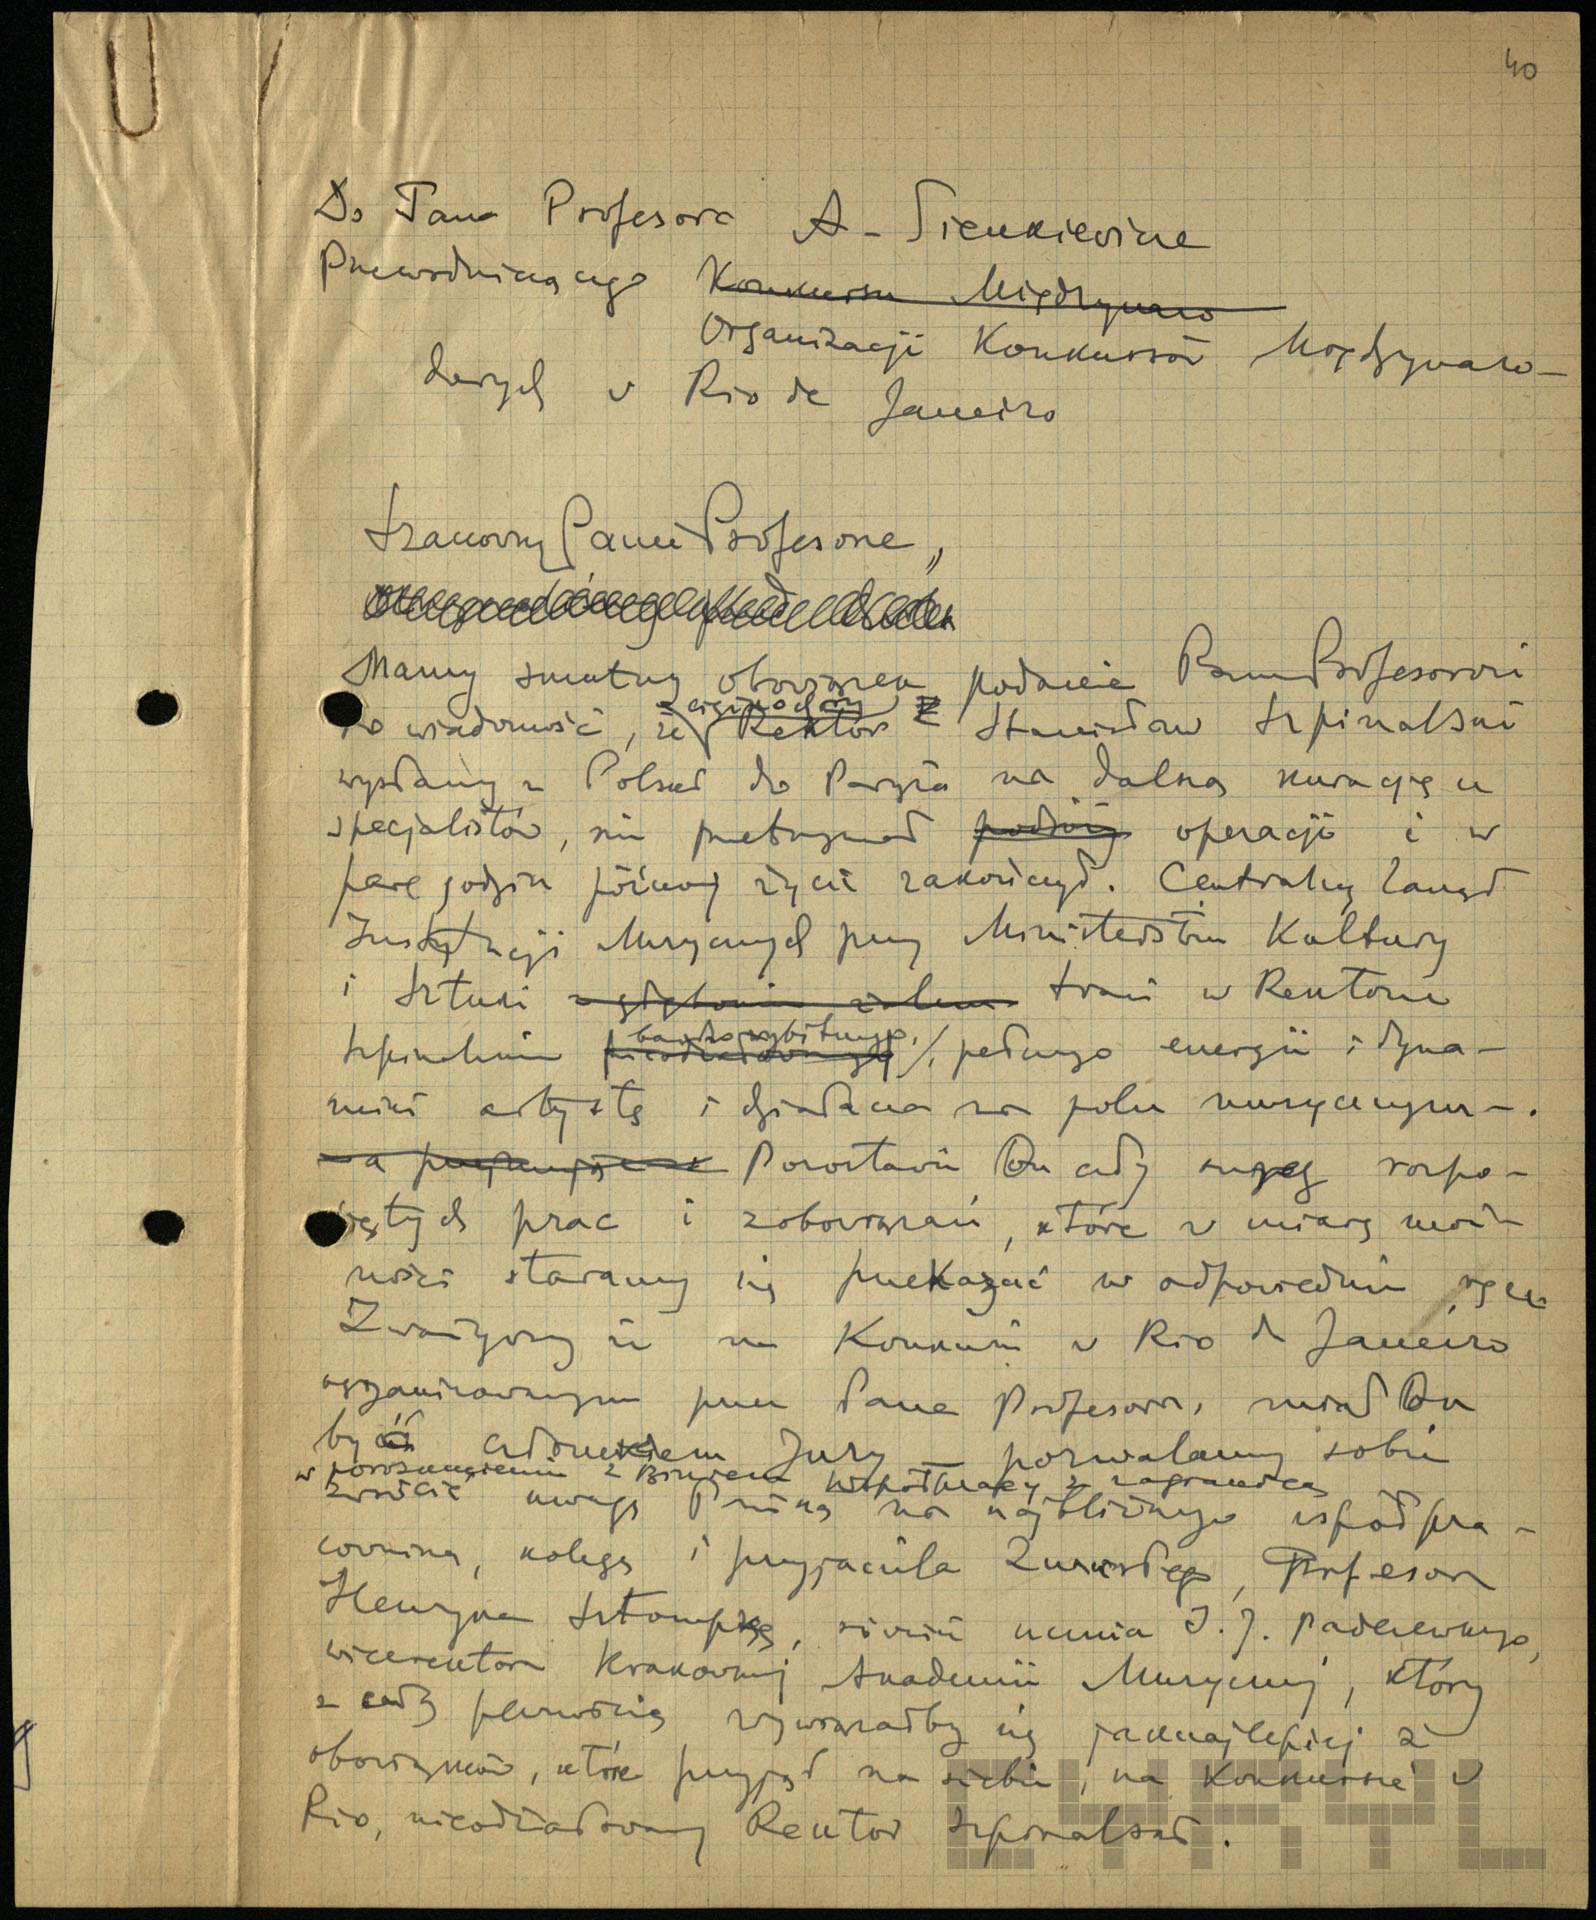 40
Do Pana Profesora A. Sienkiewicza
Przewodniczącego Konkursu Międzynaro
Organizacji Konkursów Międzynaro-
dowych w Rio de Janeiro
Szanowny Panie Profesorze,
Mamy smutny obowiązek podania Panu Profesorowi
do wiadomości, że Rektor Stanisław Szpinalski
wysłany z Polski do Paryża na dalszą kurację u
specjalistów, nie przetrzymał podróży operacji i w
parę godzin później życie zakończył. Centralny Zarząd
Instytucji Muzycznych przy Ministerstwie Kultury
i Sztuki z głębokim żalem traci w Rektorze
bardzo wybitnego,
Szpinalskim nieodżałowanego, pełnego energii i dyna-
miki artystę i działacza na polu muzycznym.
Pozostawił On cały szereg rozpo-
czętych prac i zobowiązań, które w miarę moż-
ności staramy się przekazać w odpowiednie ręce
Zważywszy że na Konkursie w Rio de Janeiro
organizowanym przez Pana Profesora, miał On
być członkiem Jury pozwalamy sobie
w porozumieniu z Biurem Współpracy z zagranicą
zwrócić uwagę Pańską na najbliższego współpra-
cownika, kolegę i przyjaciela Zmarłego, Profesora
Henryka Sztompkę, również ucznia I. J. Paderewskiego,
wicerektora Krakowskiej Akademii Muzycznej, który
z całą pewnością wywiązałby się jaknajlepiej z
obowiązków, które przyjął na siebie, na Konkursie w
Rio, nieodżałowany Rektor Szpinalski.